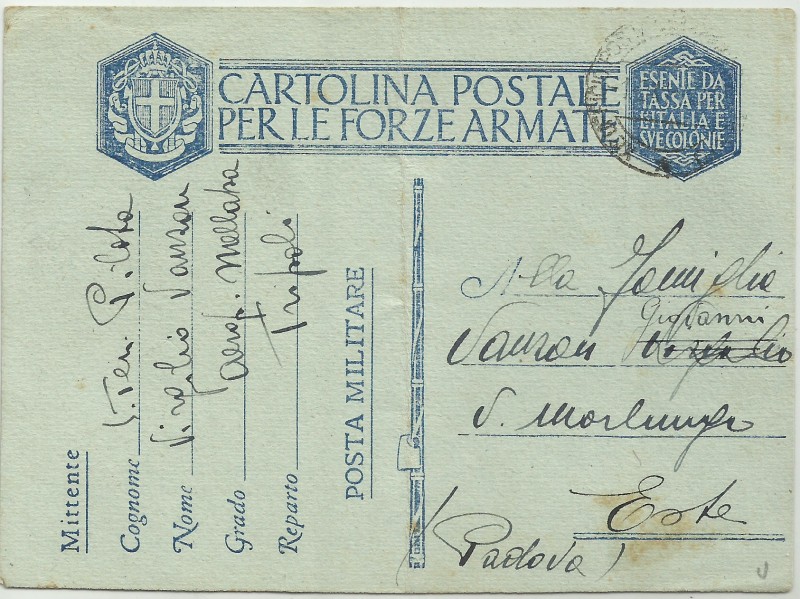 CARTOLINA POSTALE
PER LE FORZE ARMATE
ESENTE DA
TASSA PER
L'ITALIA E
SVE COLONIE
Mittente
Cognome S. Ten. Pilota
Nome Virgilio Vanzan
Grado Aerop. Mellaha
Reparto Tripoli
POSTA MILITARE
Alla Famiglia
Giovanni
Vanzan Virgilio
V. Morlungo
Este
(Padova)